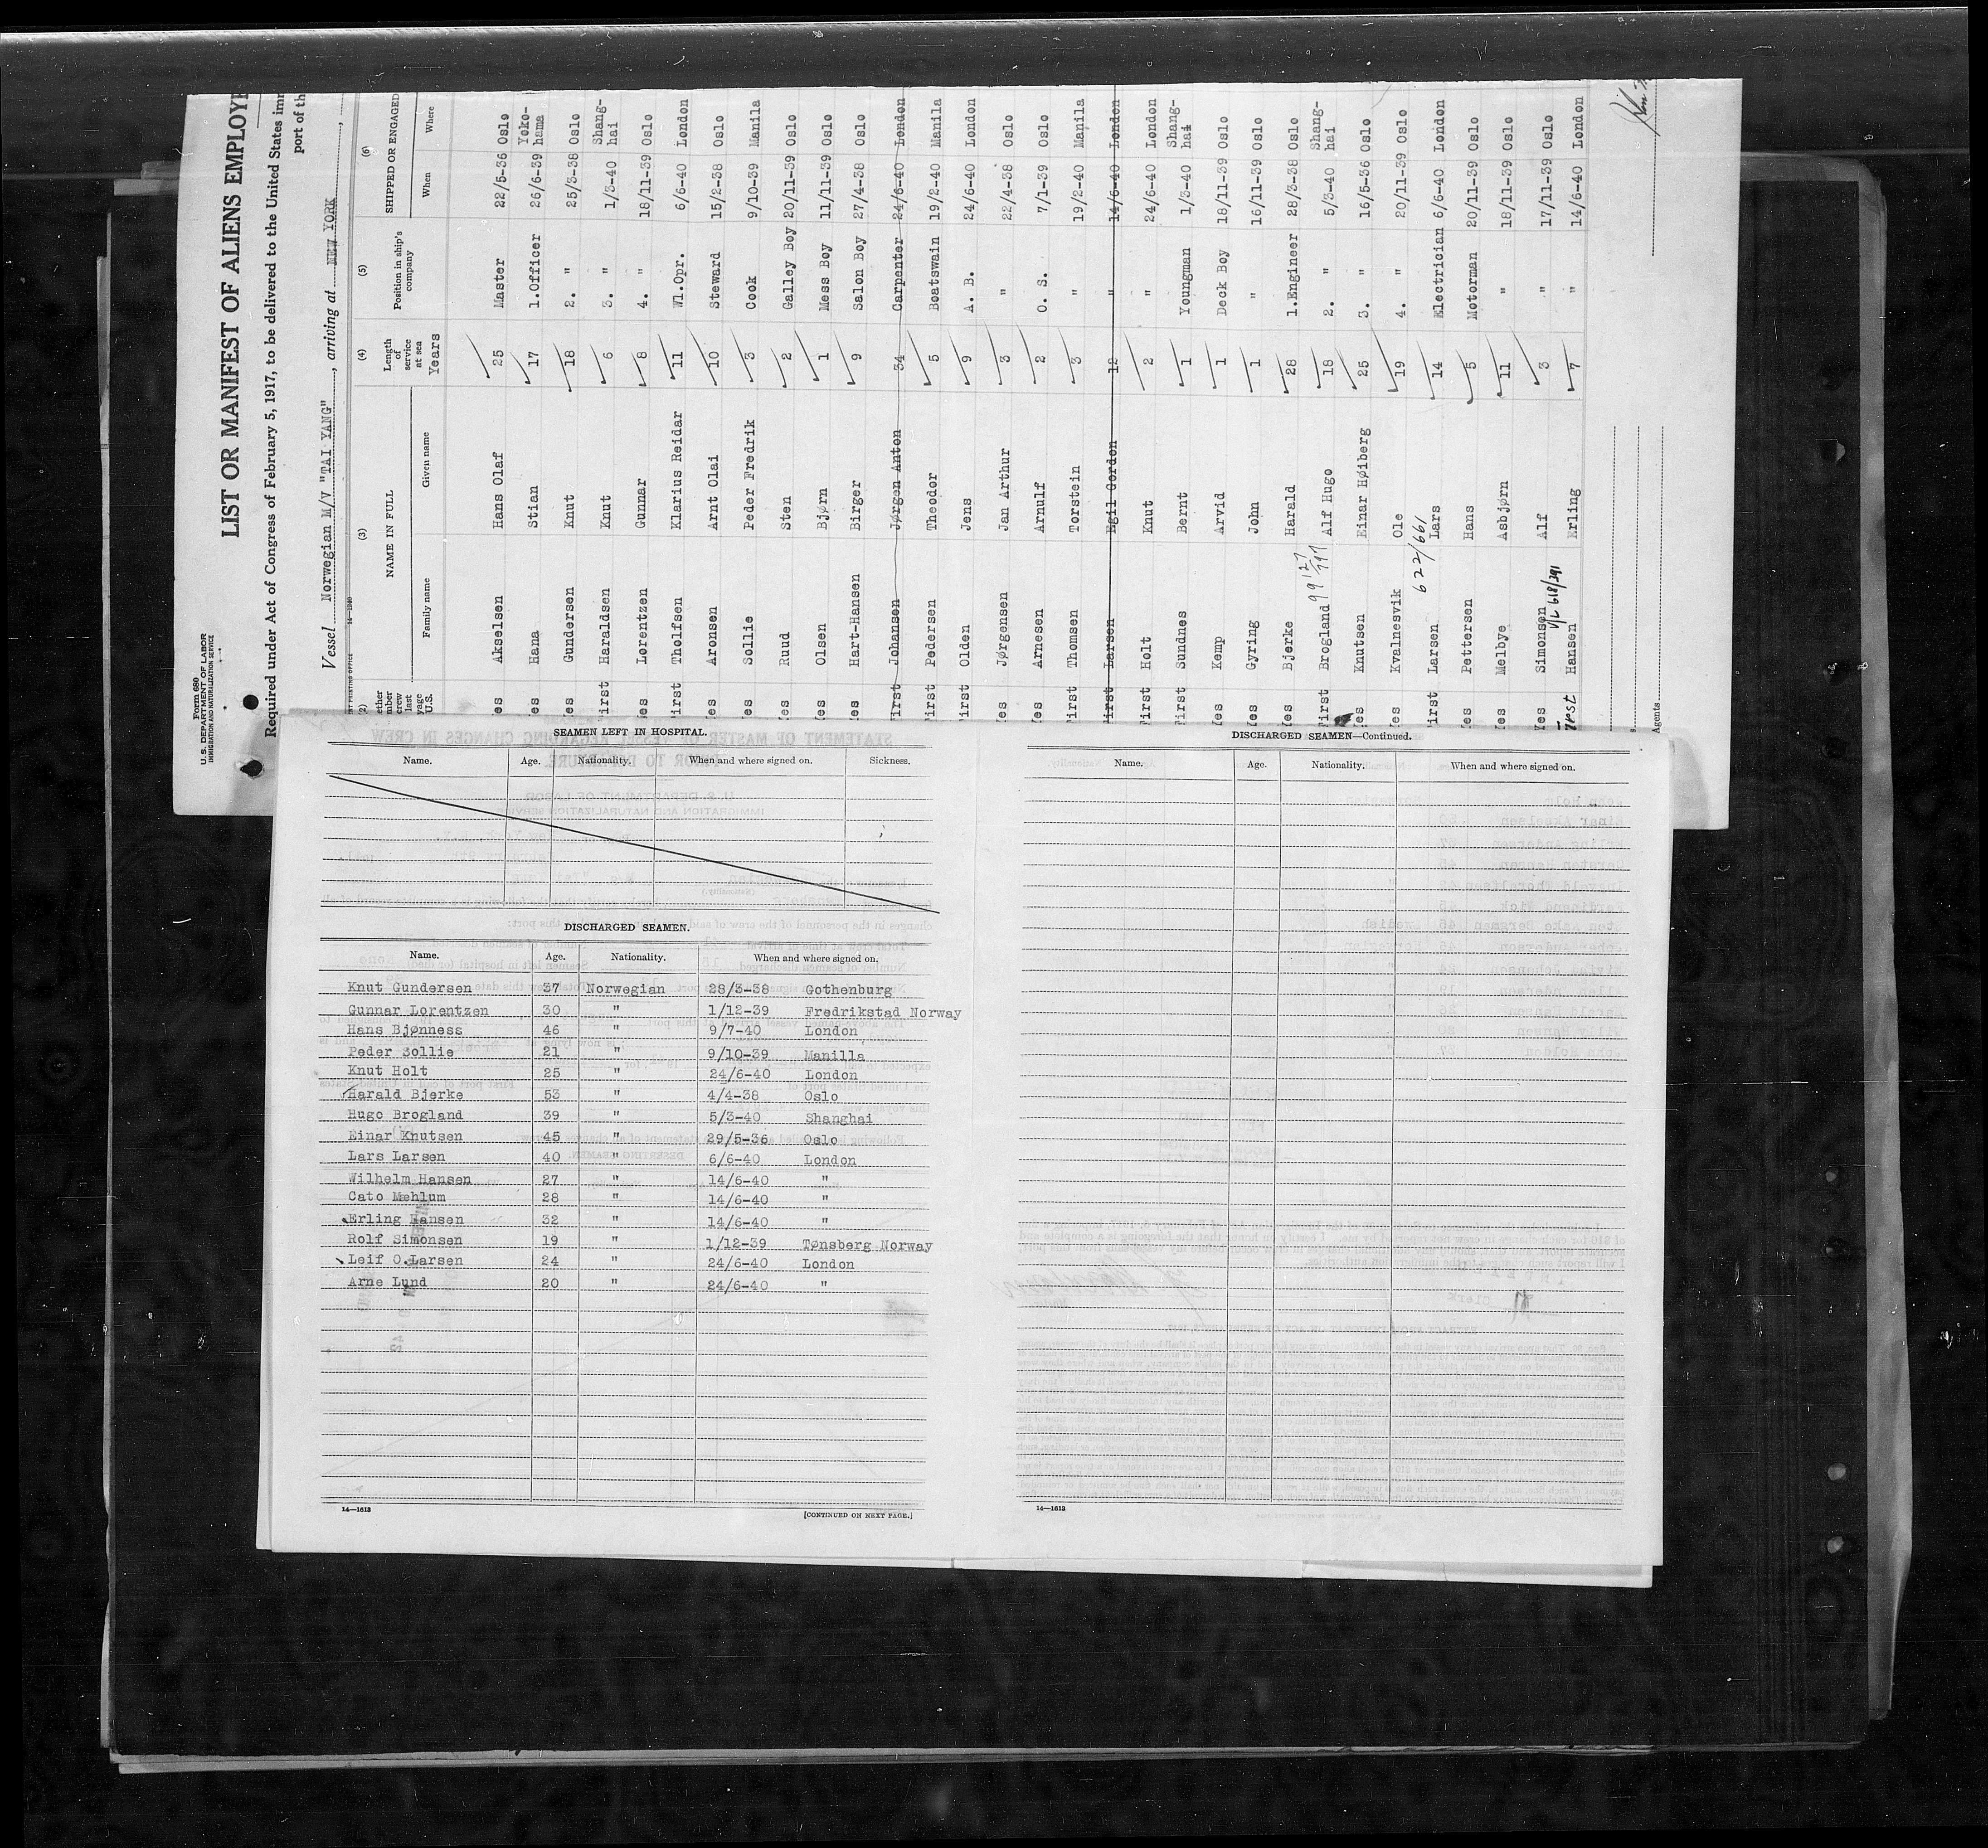 Form 680
U.S. DEPARTMENT OF LABOR
IMMIGRATION AND NATURALIZATION SERVICE
LIST OR MANIFEST OF ALIENS EMPLOY
Required under Act of Congress of February 5, 1917, to be delivered to the United States imm
port of th
Vessel Norwegian M/V "TAI YANG", arriving at NEW YORK,
(2) (3) (4) (5) (6)
NAME IN FULL Length of service at sea Position in ship's company SHIPPED OR ENGAGED
Family name Given name Years When Where
es Akselsen Hans Olaf 25 Master 22/5-36 Oslo
es Hana Stian 17 1.Officer 26/6-39 Yokohama
es Gundersen Knut 18 2. " 25/3-38 Oslo
irst Haraldsen Knut 6 3. " 1/3-40 Shanghai
es Lorentzen Gunnar 8 4. " 18/11-39 Oslo
irst Tholfsen Klarius Reidar 11 Wl.Opr. 6/6-40 London
es Aronsen Arnt Olai 10 Steward 15/2-38 Oslo
es Sollie Peder Fredrik 3 Cook 9/10-39 Manila
es Ruud Sten 2 Galley Boy 20/11-39 Oslo
es Olsen Bjørn 1 Mess Boy 11/11-39 Oslo
es Hart-Hansen Birger 9 Salon Boy 27/4-38 Oslo
irst Johansen Jørgen Anton 34 Carpenter 24/6-40 London
irst Pedersen Theodor 5 Boatswain 19/2-40 Manila
irst Olden Jens 9 A. B. 24/6-40 London
es Jørgensen Jan Arthur 3 " 22/4-38 Oslo
es Arnesen Arnulf 2 O. S. 7/1-39 Oslo
irst Thomsen Torstein 3 " 19/2-40 Manila
irst Larsen Egil Gordon 12 " 14/6-40 London
irst Holt Knut 2 " 24/6-40 London
irst Sundnes Bernt 1 Youngman 1/3-40 Shanghai
es Kemp Arvid 1 Deck Boy 18/11-39 Oslo
es Gyring John 1 " 16/11-39 Oslo
es Bjerke Harald 28 1.Engineer 28/3-38 Oslo
irst Brogland Alf Hugo 18 2. " 5/3-40 Shanghai
es Knutsen Einar Høiberg 25 3. " 16/5-36 Oslo
es Kvalnesvik Ole 19 4. " 20/11-39 Oslo
622/661
irst Larsen Lars 14 Electrician 6/6-40 London
es Pettersen Hans 5 Motorman 20/11-39 Oslo
es Melbye Asbjørn 11 " 18/11-39 Oslo
Yes Simonsen Alf 3 " 17/11-39 Oslo
V/L 618/291
First Hansen Erling 7 " 14/6-40 London
Agents
SEAMEN LEFT IN HOSPITAL.
Name. Age. Nationality. When and where signed on. Sickness.
DISCHARGED SEAMEN.
Name. Age. Nationality. When and where signed on.
Knut Gundersen 37 Norwegian 28/3-38 Gothenburg
Gunnar Lorentzen 30 " 1/12-39 Fredrikstad Norway
Hans Bjønness 46 " 9/7-40 London
Peder Sollie 21 " 9/10-39 Manilla
Knut Holt 25 " 24/6-40 London
Harald Bjerke 53 " 4/4-38 Oslo
Hugo Brogland 39 " 5/3-40 Shanghai
Einar Knutsen 45 " 29/5-36 Oslo
Lars Larsen 40 " 6/6-40 London
Wilhelm Hansen 27 " 14/6-40 "
Cato Mæhlum 28 " 14/6-40 "
Erling Hansen 32 " 14/6-40 "
Rolf Simonsen 19 " 1/12-39 Tønsberg Norway
Leif O.Larsen 24 " 24/6-40 London
Arne Lund 20 " 24/6-40 "
14—1613
[CONTINUED ON NEXT PAGE.]
DISCHARGED SEAMEN—Continued.
Name. Age. Nationality. When and where signed on.
14—1613